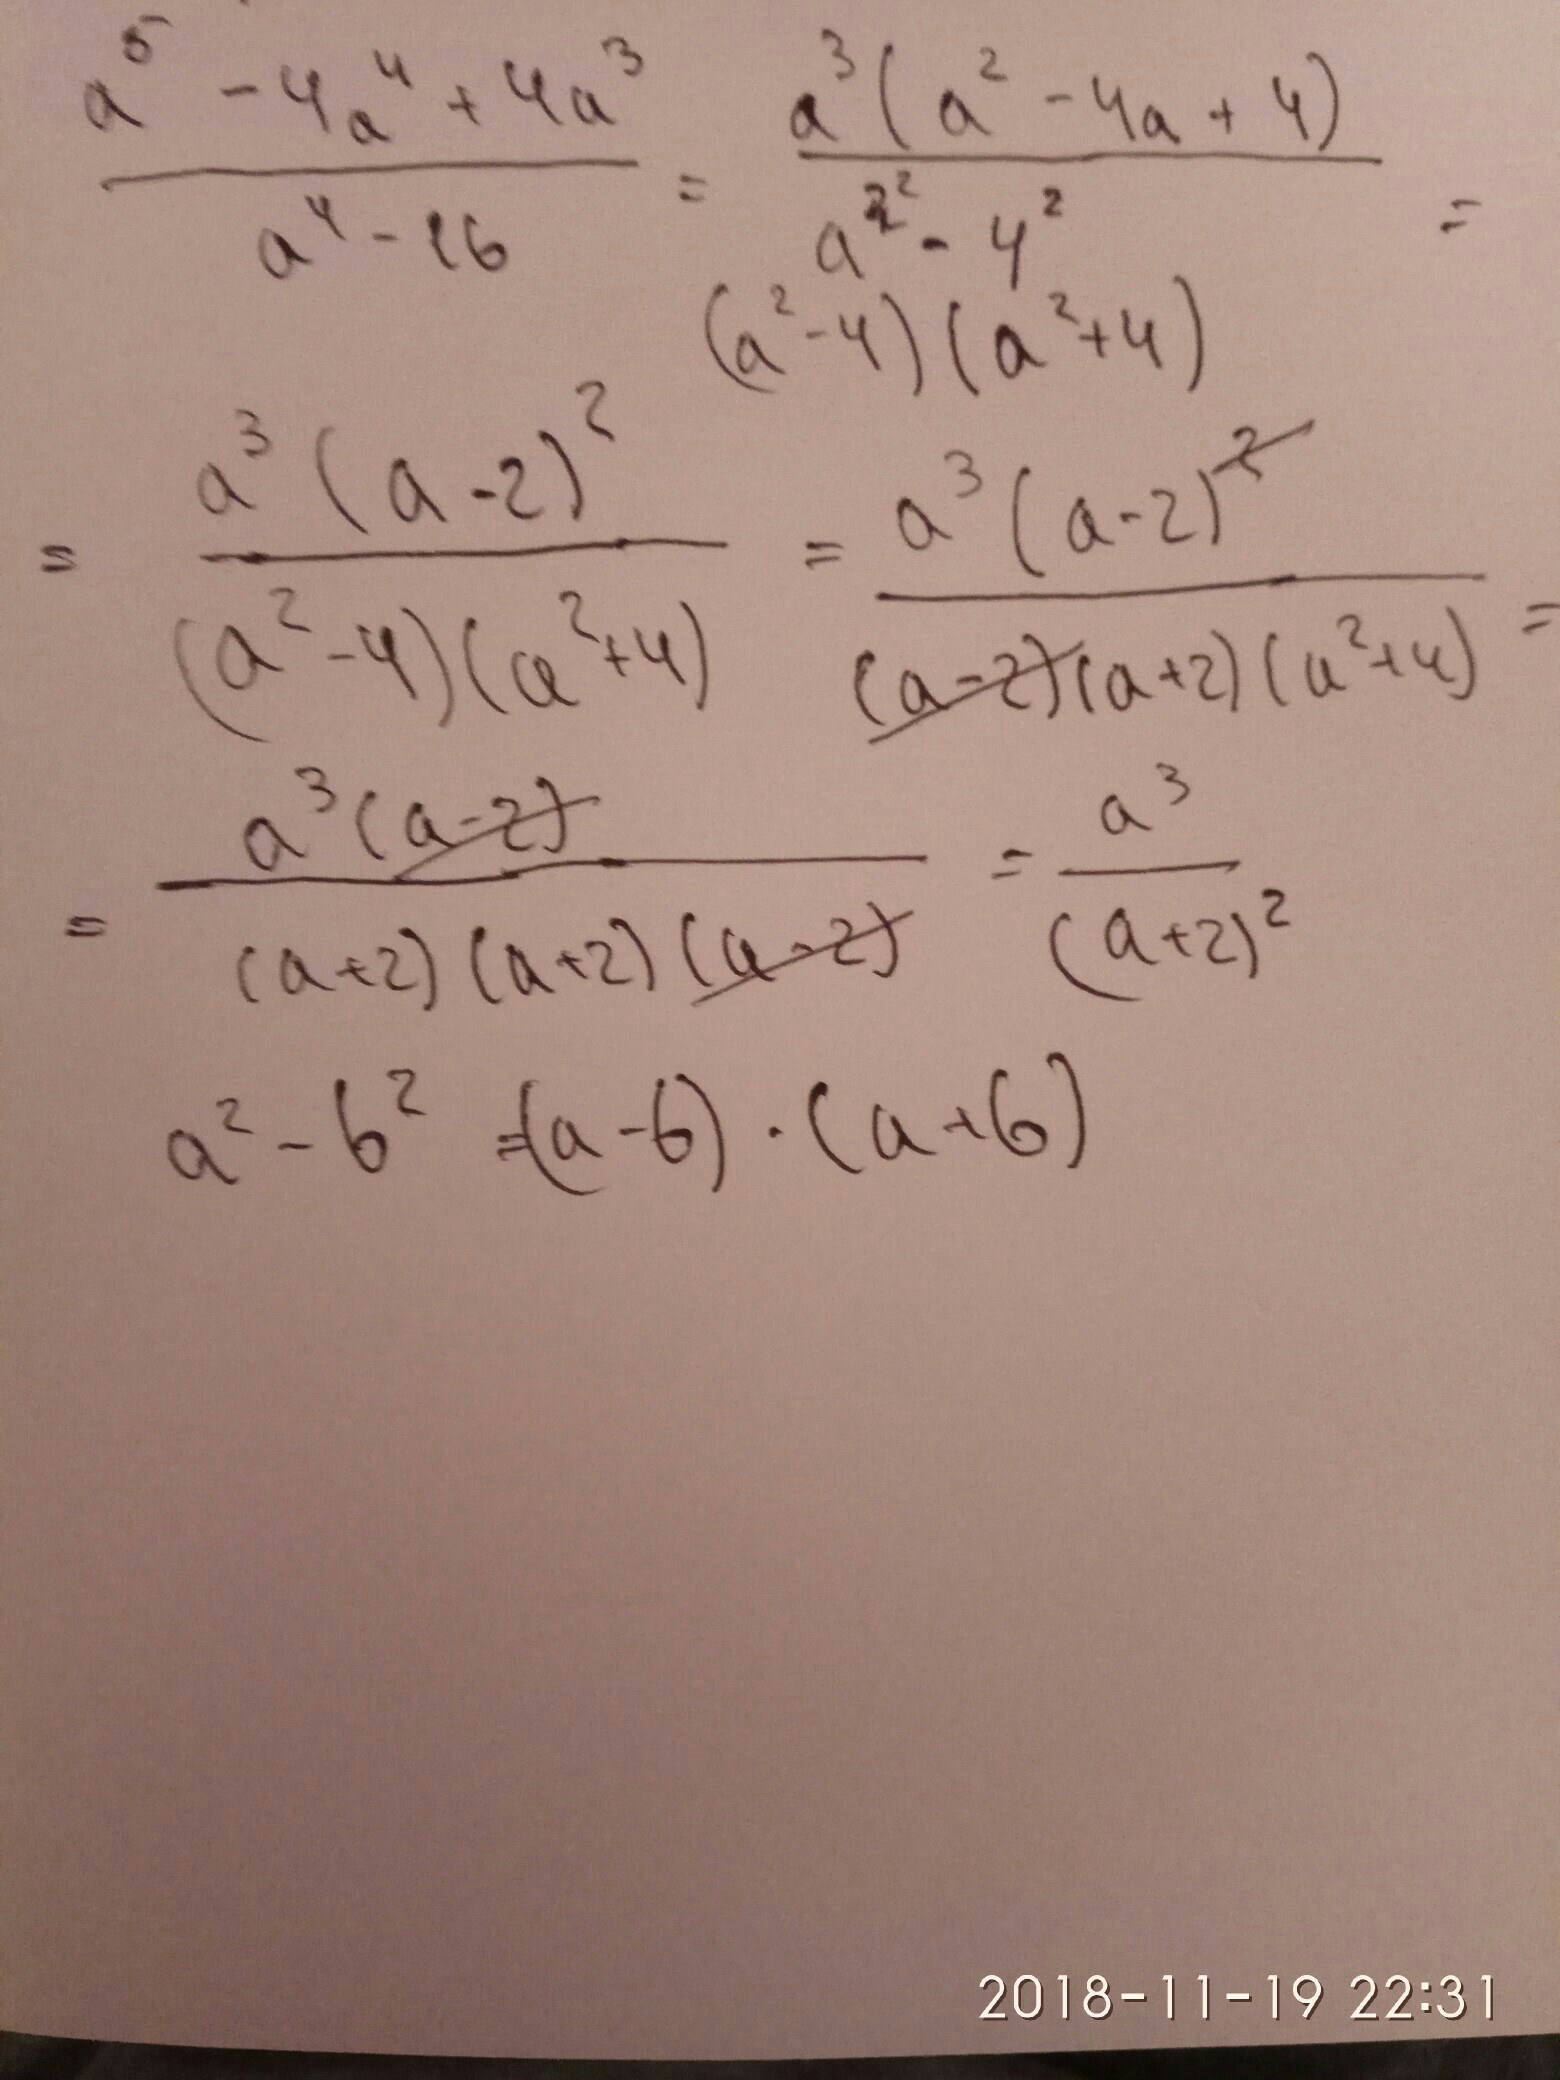 a⁵ - 4a⁴ + 4a³ / a⁴ - 16 = a³(a² - 4a + 4) / a²² - 4² =
(a² - 4)(a² + 4)
= a³(a - 2)² / (a² - 4)(a² + 4) = a³(a - 2)² / (a - 2)(a + 2)(a² + 4) =
= a³(a - 2) / (a + 2)(a + 2)(a - 2) = a³ / (a + 2)²
a² - b² = (a - b) · (a + b)
2018-11-19 22:31